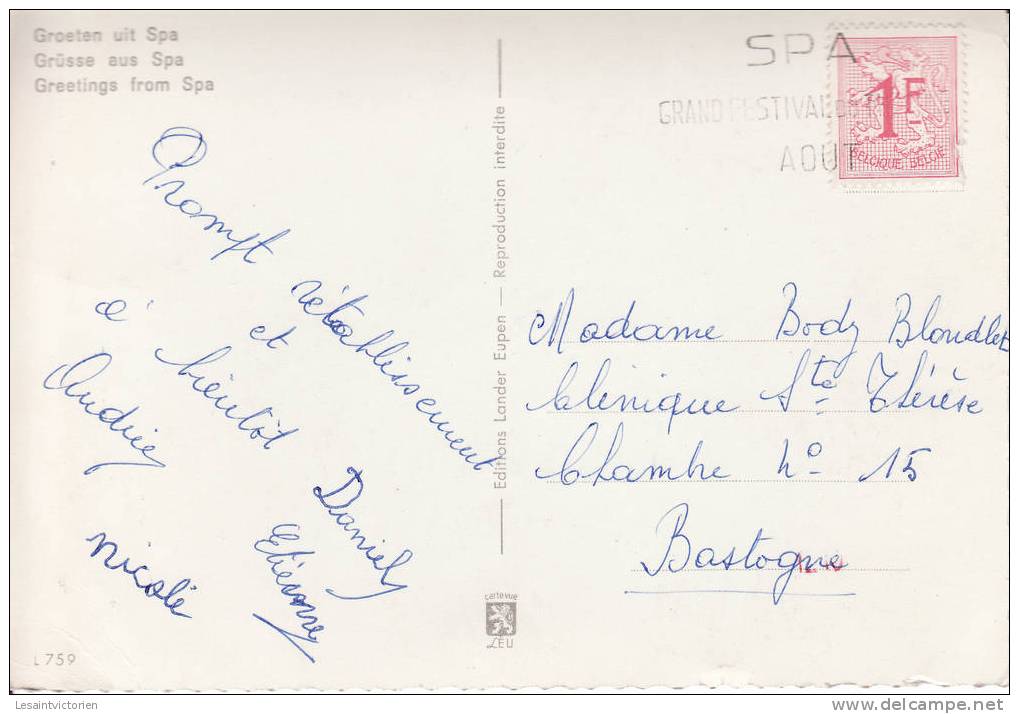 Groeten uit Spa
Grüsse aus Spa
Greetings from Spa
SPA
GRAND FESTIVAL
AOUT
1F
BELGIQUE BELGIË
Prompt rétablissement
et
à bientôt
Andrée
Daniel
Etienne
Nicole
Editions Lander Eupen — Reproduction interdite
Madame Body Blondlet
Clinique Ste Thérèse
Chambre No 15
Bastogne
carte vue
LEU
L 759
Lesaintvictorien
delcampe.net